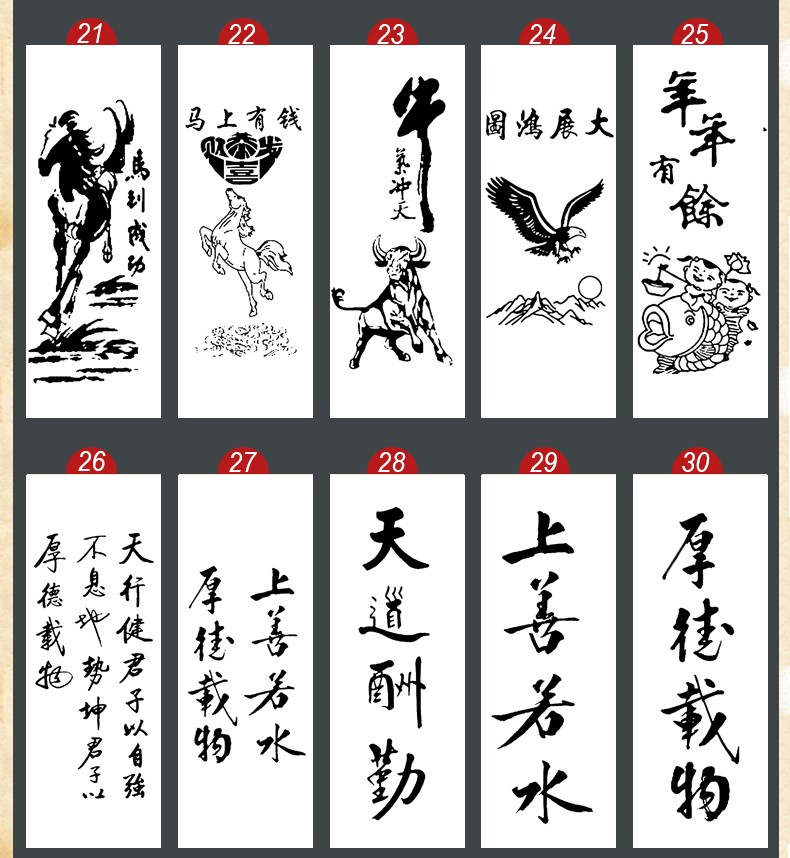 21
馬到成功
22
马上有钱
恭
喜
23
牛
氣冲天
24
大展鴻圖
25
年
年
有
餘
26
天行健君子以自強
不息地勢坤君子以
厚德載物
27
上善若水
厚德載物
28
天道酬勤
29
上善若水
30
厚德載物